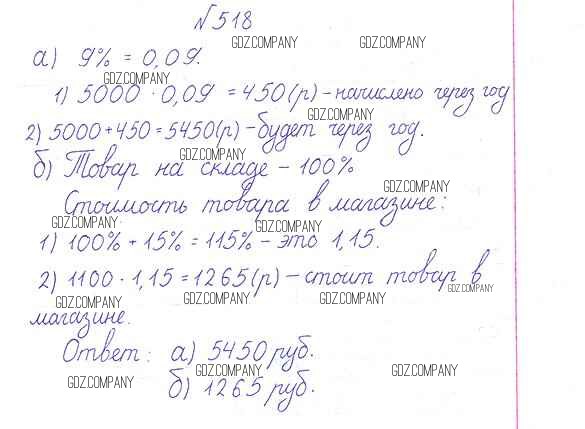 №518
GDZ.COMPANY GDZ.COMPANY
а) 9% = 0,09.
GDZ.COMPANY
1) 5000 · 0,09 = 450 (р) - начислено через год
GDZ.COMPANY
2) 5000 + 450 = 5450 (р) - будет через год.
GDZ.COMPANY
б) Товар на складе - 100%
GDZ.COMPANY
Стоимость товара в магазине:
GDZ.COMPANY GDZ.COMPANY
1) 100% + 15% = 115% - это 1,15.
2) 1100 · 1,15 = 1265 (р) - стоит товар в
GDZ.COMPANY GDZ.COMPANY GDZ.COMPANY GDZ.COMPANY
магазине.
Ответ: а) 5450 руб.
GDZ.COMPANY GDZ.COMPANY GDZ.COMPANY
б) 1265 руб.